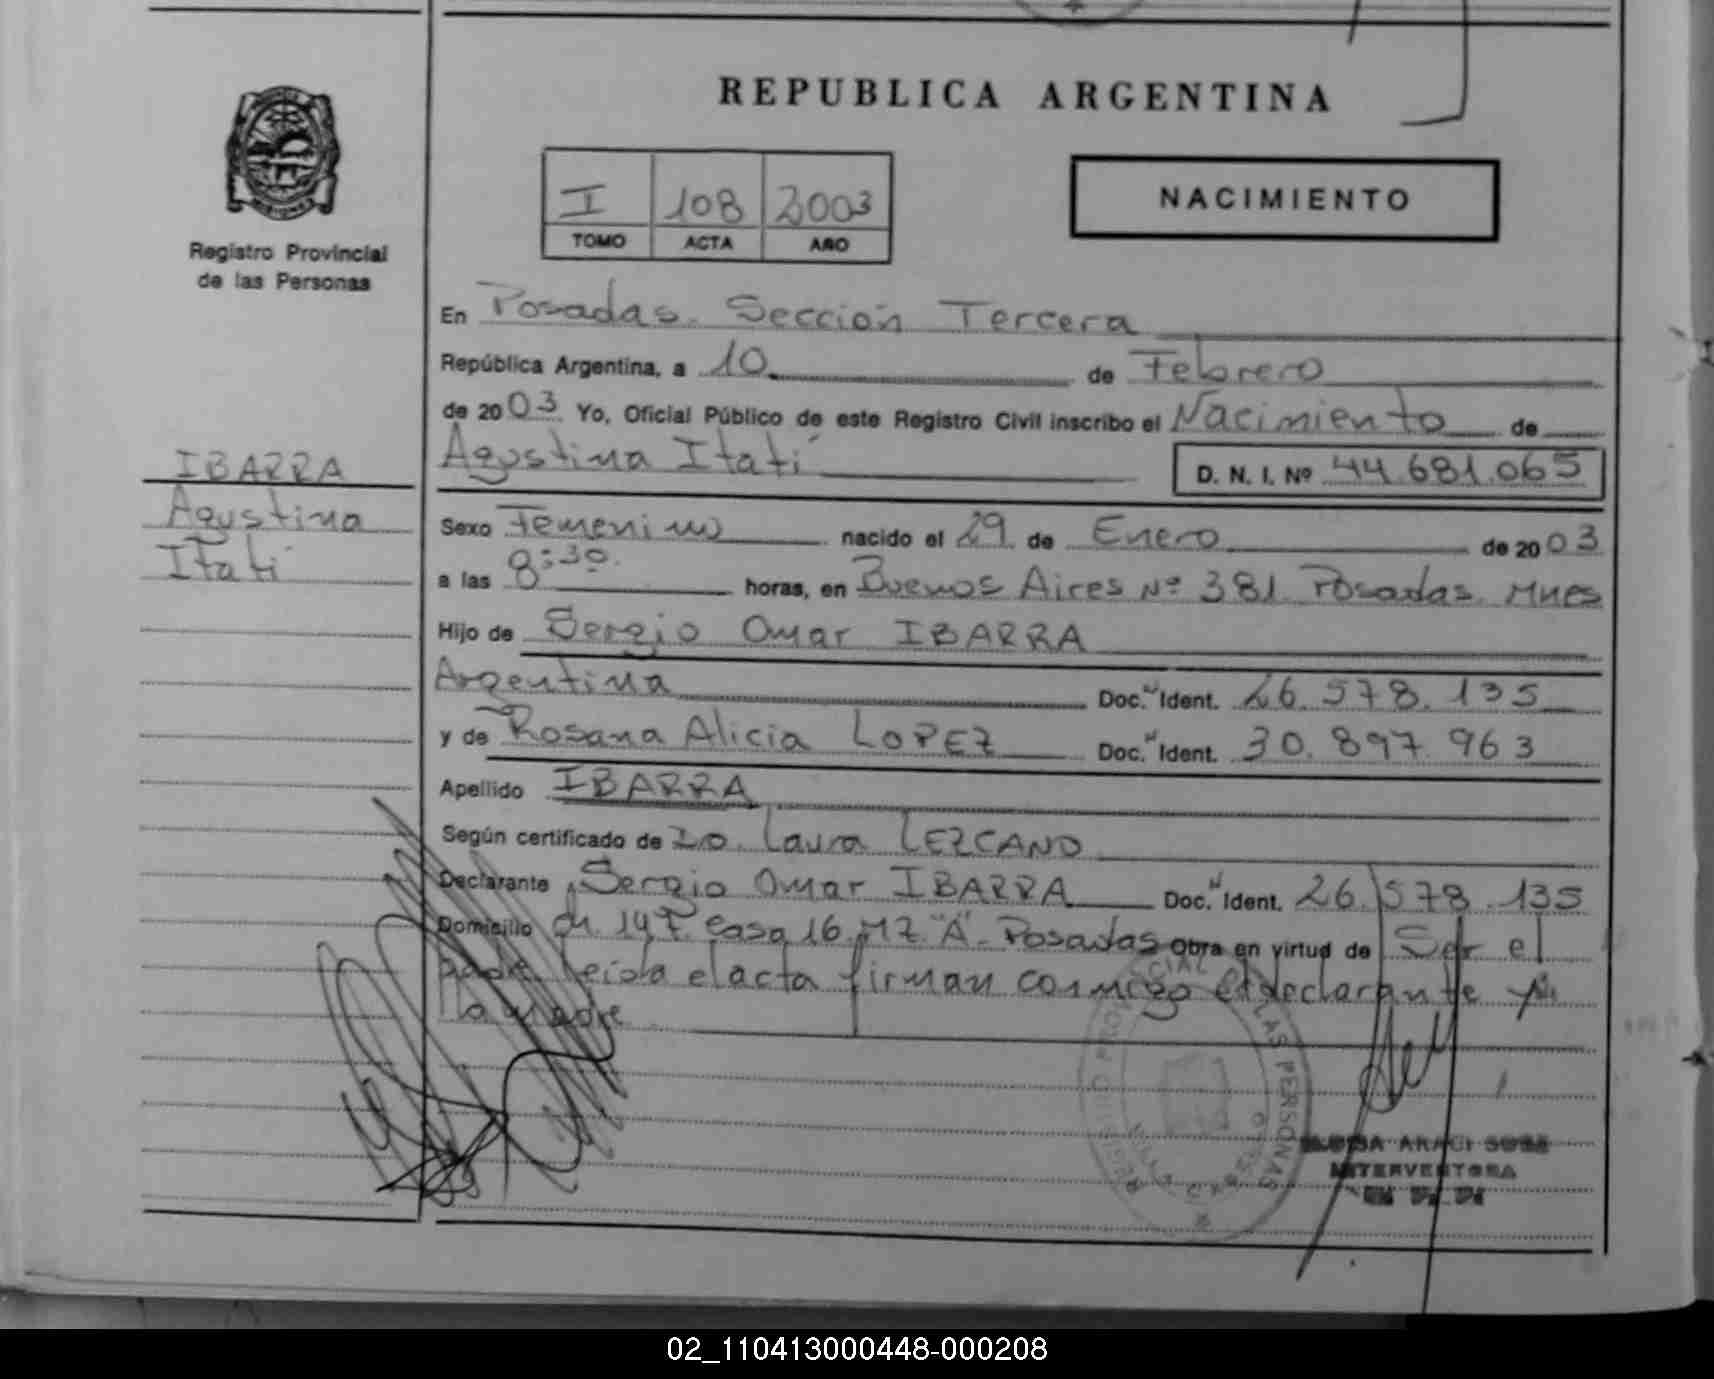 REPUBLICA ARGENTINA
I 108 2003
TOMO ACTA AÑO
NACIMIENTO
MISIONES
Registro Provincial
de las Personas
En Posadas. Sección Tercera
República Argentina, a 10 de Febrero
de 2003 Yo, Oficial Público de este Registro Civil inscribo el Nacimiento de
Agustina Itatí D. N. I. Nº 44.681.065
IBARRA
Agustina
Itatí
Sexo Femenino nacido el 29 de Enero de 2003
a las 8:30. horas, en Buenos Aires Nº 381 Posadas. Mnes
Hijo de Sergio Omar IBARRA
Argentina Doc. Ident. 26.578.135
y de Rosana Alicia LOPEZ Doc. Ident. 30.897.963
Apellido IBARRA
Según certificado de Laura LEZCANO
Declarante Sergio Omar IBARRA Doc. Ident. 26.578.135
Domicilio Ch. 147. Casa 16. MZ. "A". Posadas Obra en virtud de Ser el
padre leida el acta firman conmigo el declarante y
la madre
REGISTRO PROVINCIAL DE LAS PERSONAS
ARACI
INTERVENTORA
02_110413000448-000208